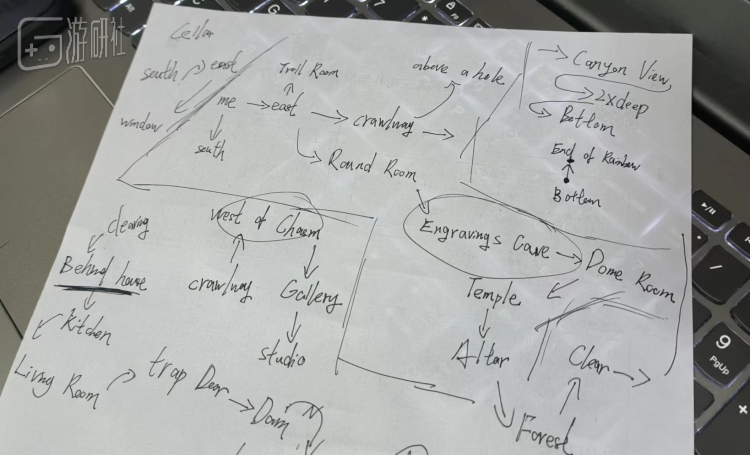 游研社
Cellar
south
east
window
me
east
Troll Room
south
crawlway
above a hole
Round Room
Canyon View
2xdeep
Bottom
End of Rainbow
Bottom
Engravings Cave
Dome Room
Temple
Altar
Forest
Clear
West of Chasm
crawlway
Gallery
studio
clearing
Behind house
Kitchen
Living Room
trap Door
Down
9
PgUp